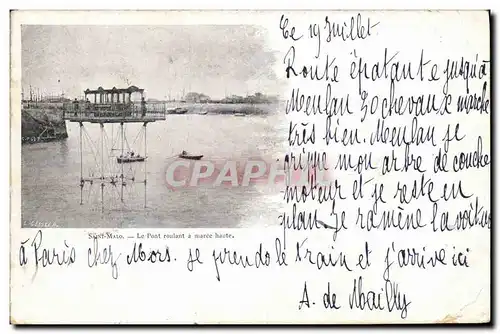 Ce 19 Juillet
Route épatante jusqu'à
Meulan 20 chevaux marche
très bien. Meulan je
grippe mon arbre de couche
moteur et je reste en
plan. Je ramène la voiture
à Paris chez Mors. Je prends le train et j'arrive ici
A. de Mailly
SAINT-MALO. — Le Pont roulant à marée haute.
CPARAMA